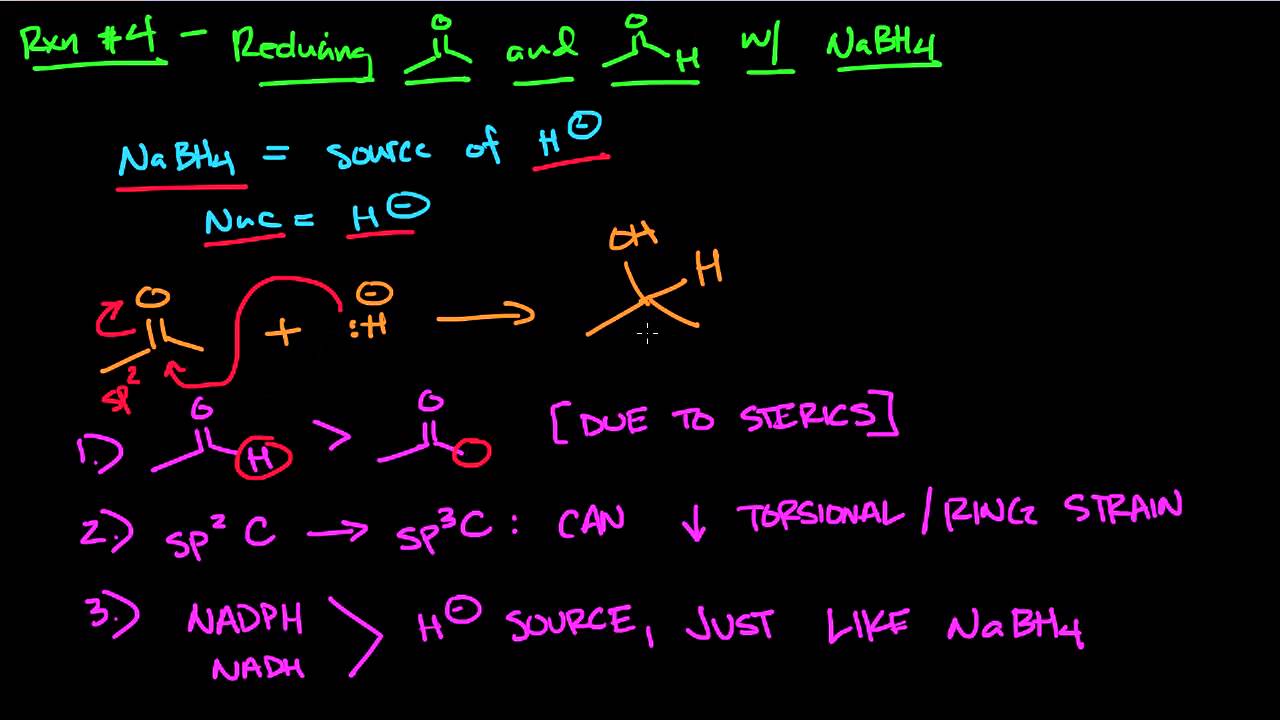 Rxn #4 - Reducing O and O H w/ NaBH4
NaBH4 = source of H⊖
Nuc = H⊖
OH
H
O + ⊖ :H →
sp²
O O
1.) H > [DUE TO STERICS]
2.) sp² C → sp³ C : CAN ↓ TORSIONAL / RING STRAIN
3.) NADPH
NADH > H⊖ SOURCE, JUST LIKE NaBH4